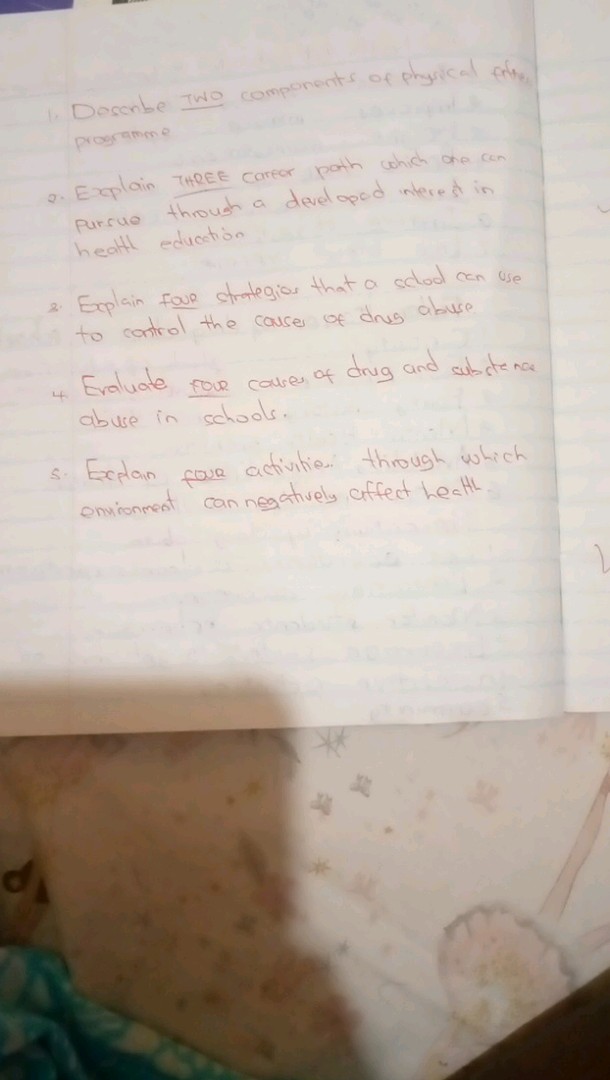 1. Describe TWO components of physical
programme
2. Explain THREE career path which one can
pursue through a developed interest in
health education
3. Explain four strategies that a school can use
to control the causes of drug abuse
4. Evaluate four causes of drug and substance
abuse in schools.
5. Explain four activities through which
environment can negatively affect health.